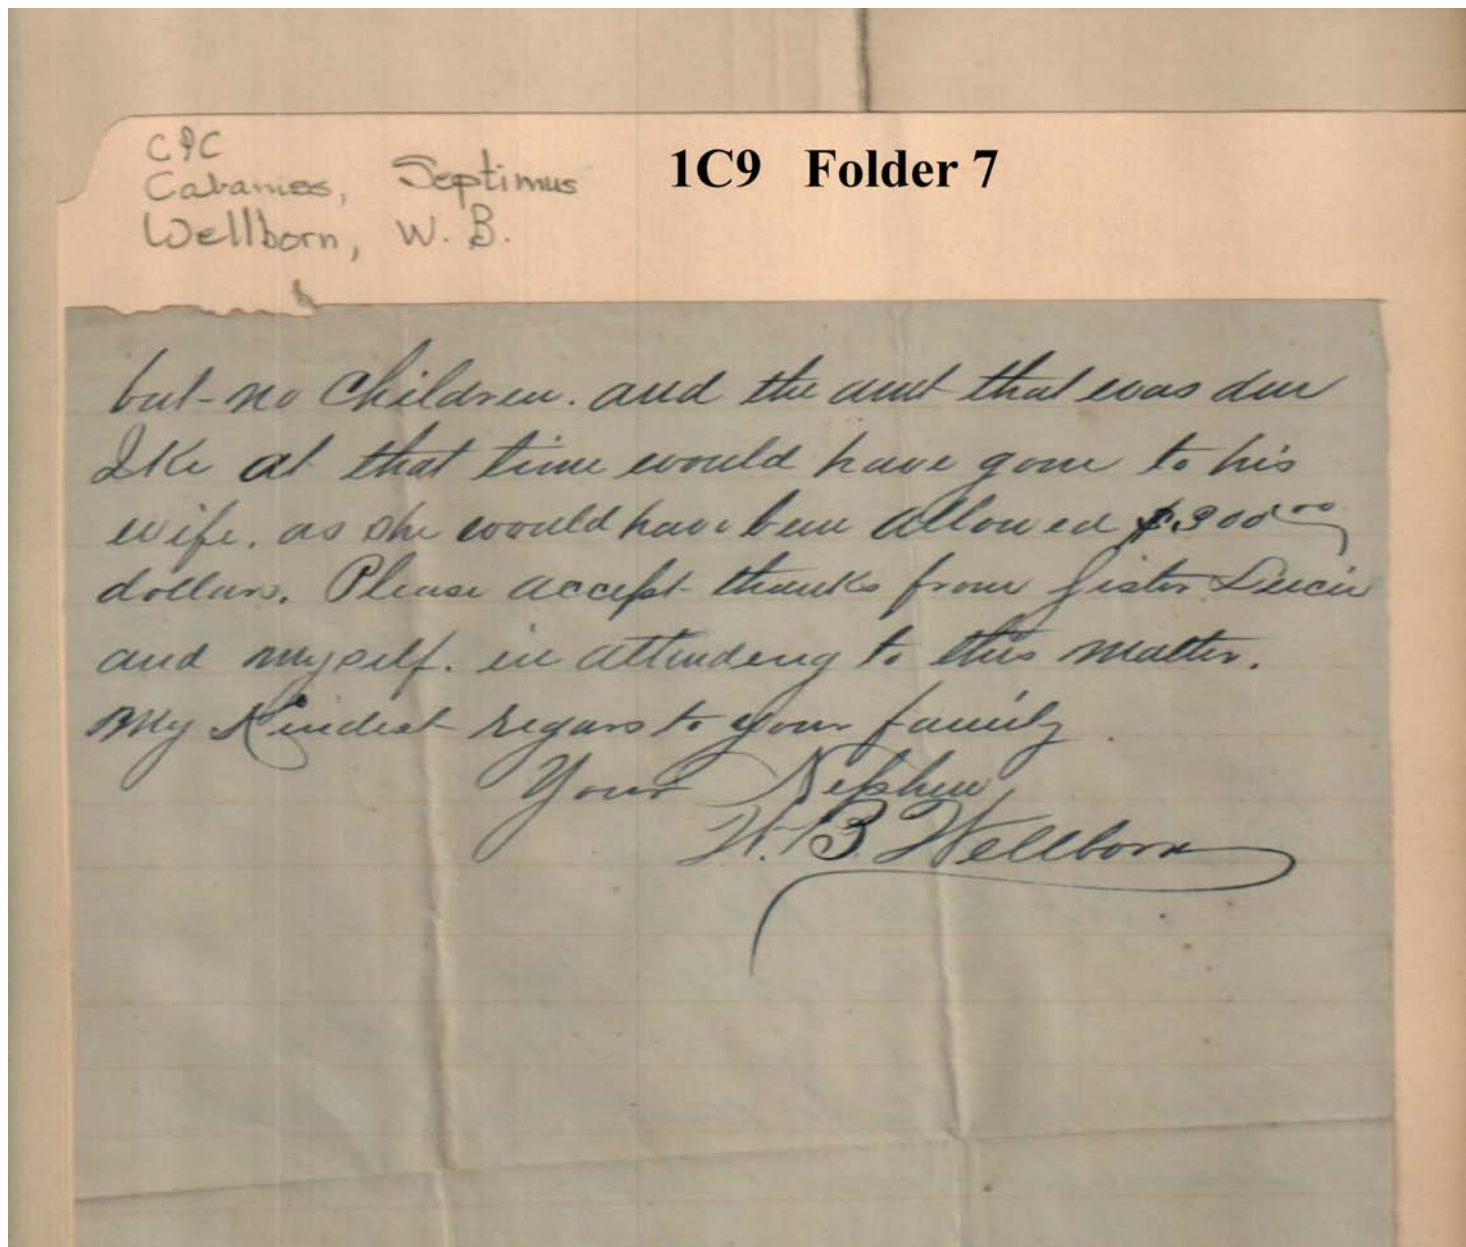 CPC
Cabaniss, Septimus
Wellborn, W. B.
1C9 Folder 7
but no Children. and the amt that was due
Ike at that time would have gone to his
wife. as she would have been allowed $300.00
dollars. Please accept thanks from Sister Lucie
and myself. in attending to this matter.
My Kindest regars to your family
Your Nephew
W. B. Wellborn